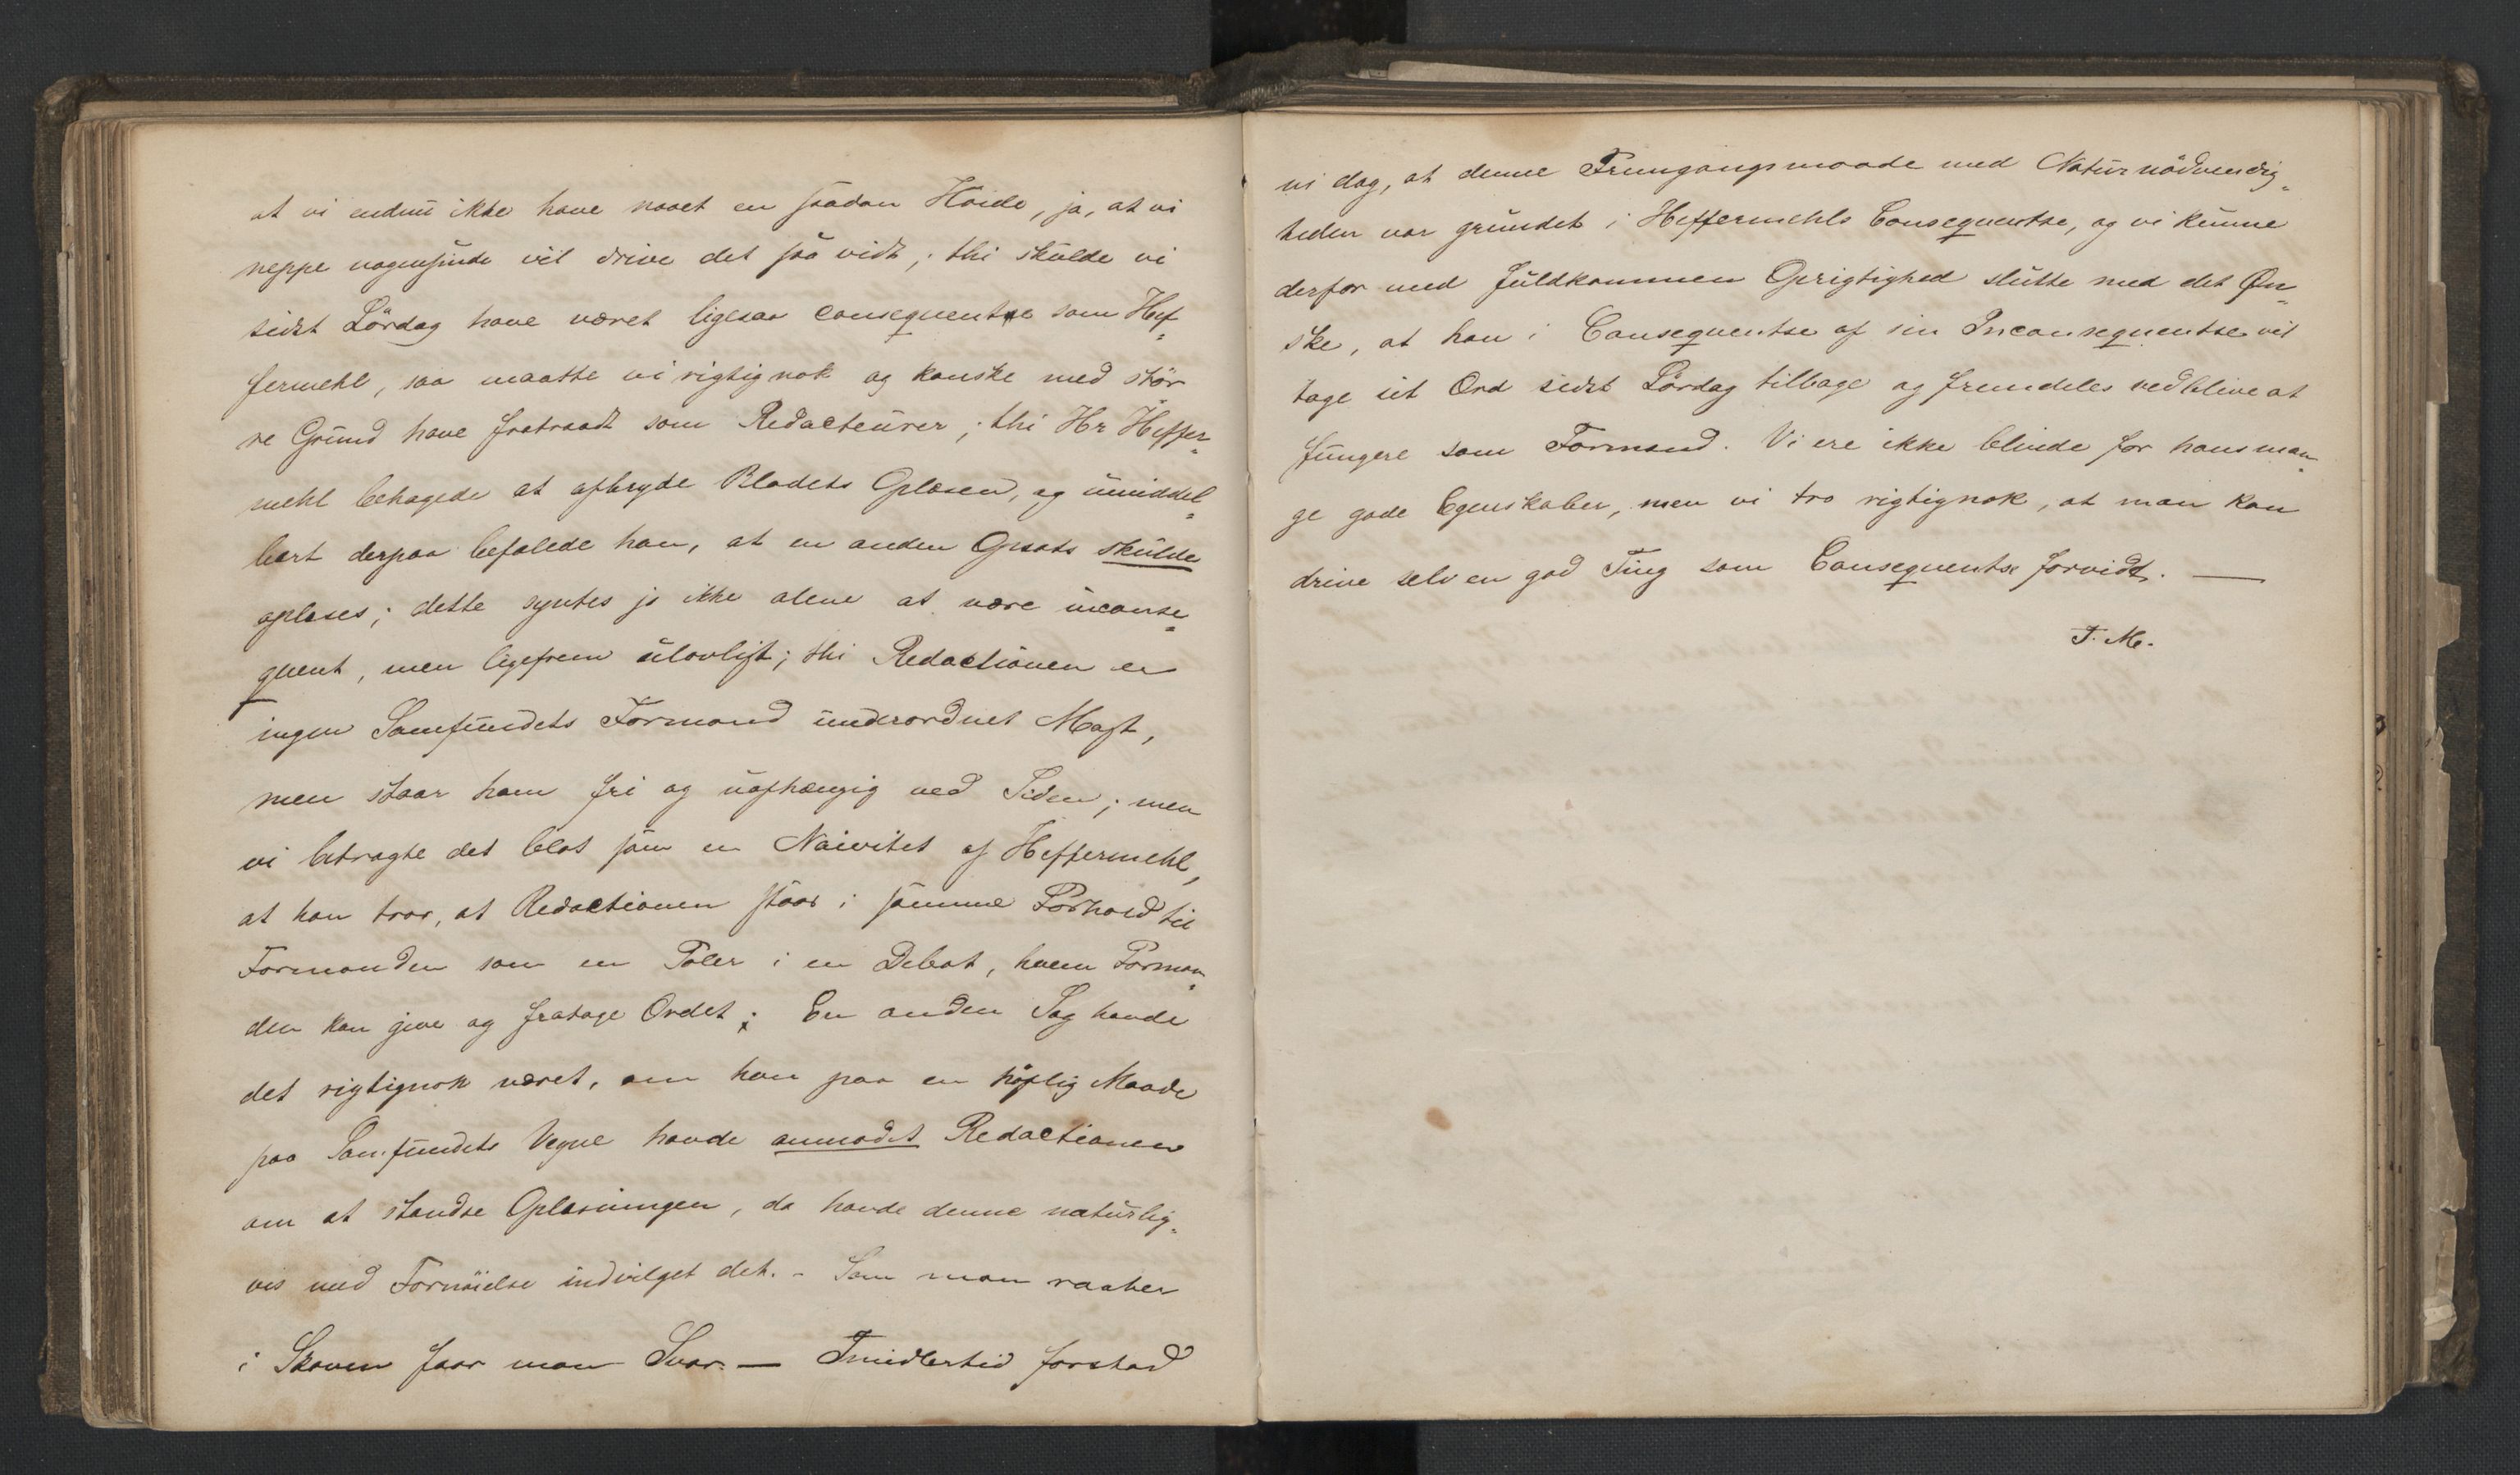 at vi endnu ikke have naaet en saadan Høide, ja, at vi
neppe nogensinde vil drive det saa vidt; thi skulde vi
sidst Lørdag have været ligesaa consequente som Hef-
fermehl, saa maatte vi rigtignok og kanske med stør
re Grund have fratraadt som Redacteurer; thi Hr Heffer-
mehl behagede at afbryde Bladets Oplæsen, og umiddel-
bart derpaa befalede han, at en anden Opsats skulde
oplæses; dette syntes jo ikke alene at være inconse-
quent, men ligefrem ulovligt; thi Redactionen er
ingen Samfundets Formand underordnet Magt,
men staar ham fri og uafhængig ved Siden; men
vi betragte det blot som en Naivitet af Heffermehl,
at han tror, at Redactionen staar i samme Forhold til
Formanden som en Taler i en Debat, hvem Forman-
den kan give og fratage Ordet; En anden Sag havde
det rigtignok været, om han paa en høflig Maade
paa Samfundets Vegne havde anmodet Redactionen
om at standse Oplæsningen, da havde denne naturlig-
vis med Fornøielse indvilget det. - Som man raaber
i Skoven faar man Svar. — Imidlertid forstod
vi dog, at denne Fremgangsmaade med Naturnødvendig-
heden var grundet i Heffermehls Consequentse, og vi kunne
derfor med fuldkommen Oprigtighed slutte med det Øn-
ske, at han i Consequentse af sin Inconsequentse vil
tage sit Ord sidst Lørdag tilbage og fremdeles vedblive at
fungere som Formand. Vi ere ikke blinde for hans man-
ge gode Egenskaber, men vi tro rigtignok, at man kan
drive selv en god Ting som Consequentse forvidt. —
J. M.